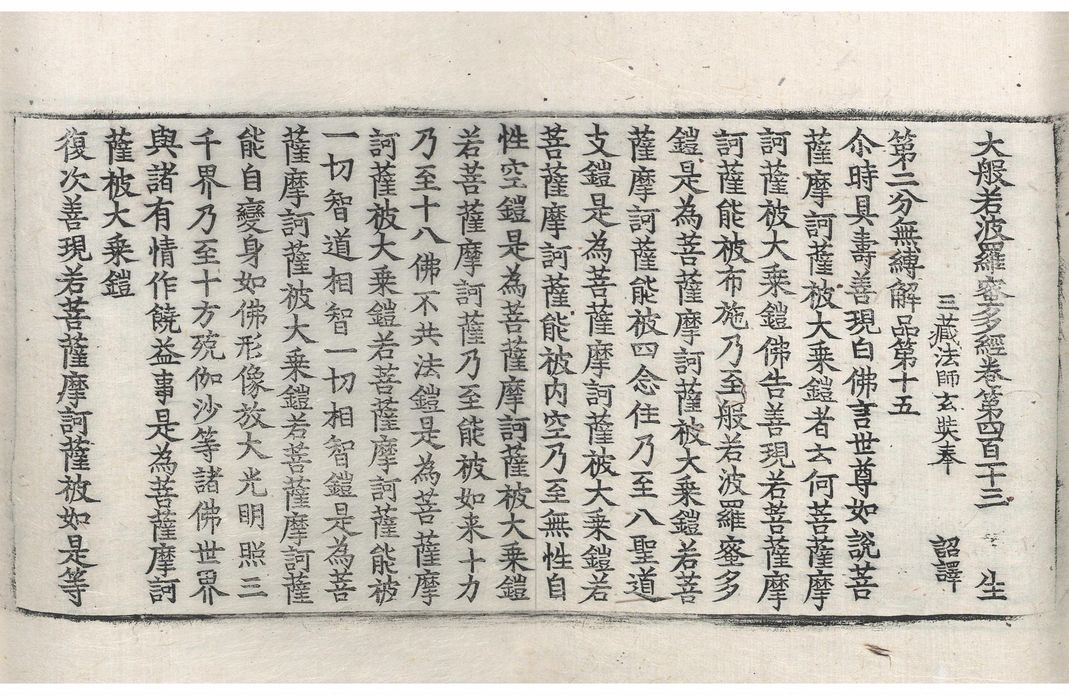 大般若波羅蜜多經卷第四百一十三 生
三藏法師玄奘奉 詔譯
第二分無縛解品第十五
尒時具壽善現白佛言世尊如說菩
薩摩訶薩被大乘鎧者云何菩薩摩
訶薩被大乘鎧佛告善現若菩薩摩
訶薩能被布施乃至般若波羅蜜多
鎧是為菩薩摩訶薩被大乘鎧若菩
薩摩訶薩能被四念住乃至八聖道
支鎧是為菩薩摩訶薩被大乘鎧若
菩薩摩訶薩能被內空乃至無性自
性空鎧是為菩薩摩訶薩被大乘鎧
若菩薩摩訶薩乃至能被如来十力
乃至十八佛不共法鎧是為菩薩摩
訶薩被大乘鎧若菩薩摩訶薩能被
一切智道相智一切相智鎧是為菩
薩摩訶薩被大乘鎧若菩薩摩訶薩
能自變身如佛形像放大光明照三
千界乃至十方殑伽沙等諸佛世界
與諸有情作饒益事是為菩薩摩訶
薩被大乘鎧
復次善現若菩薩摩訶薩被如是等